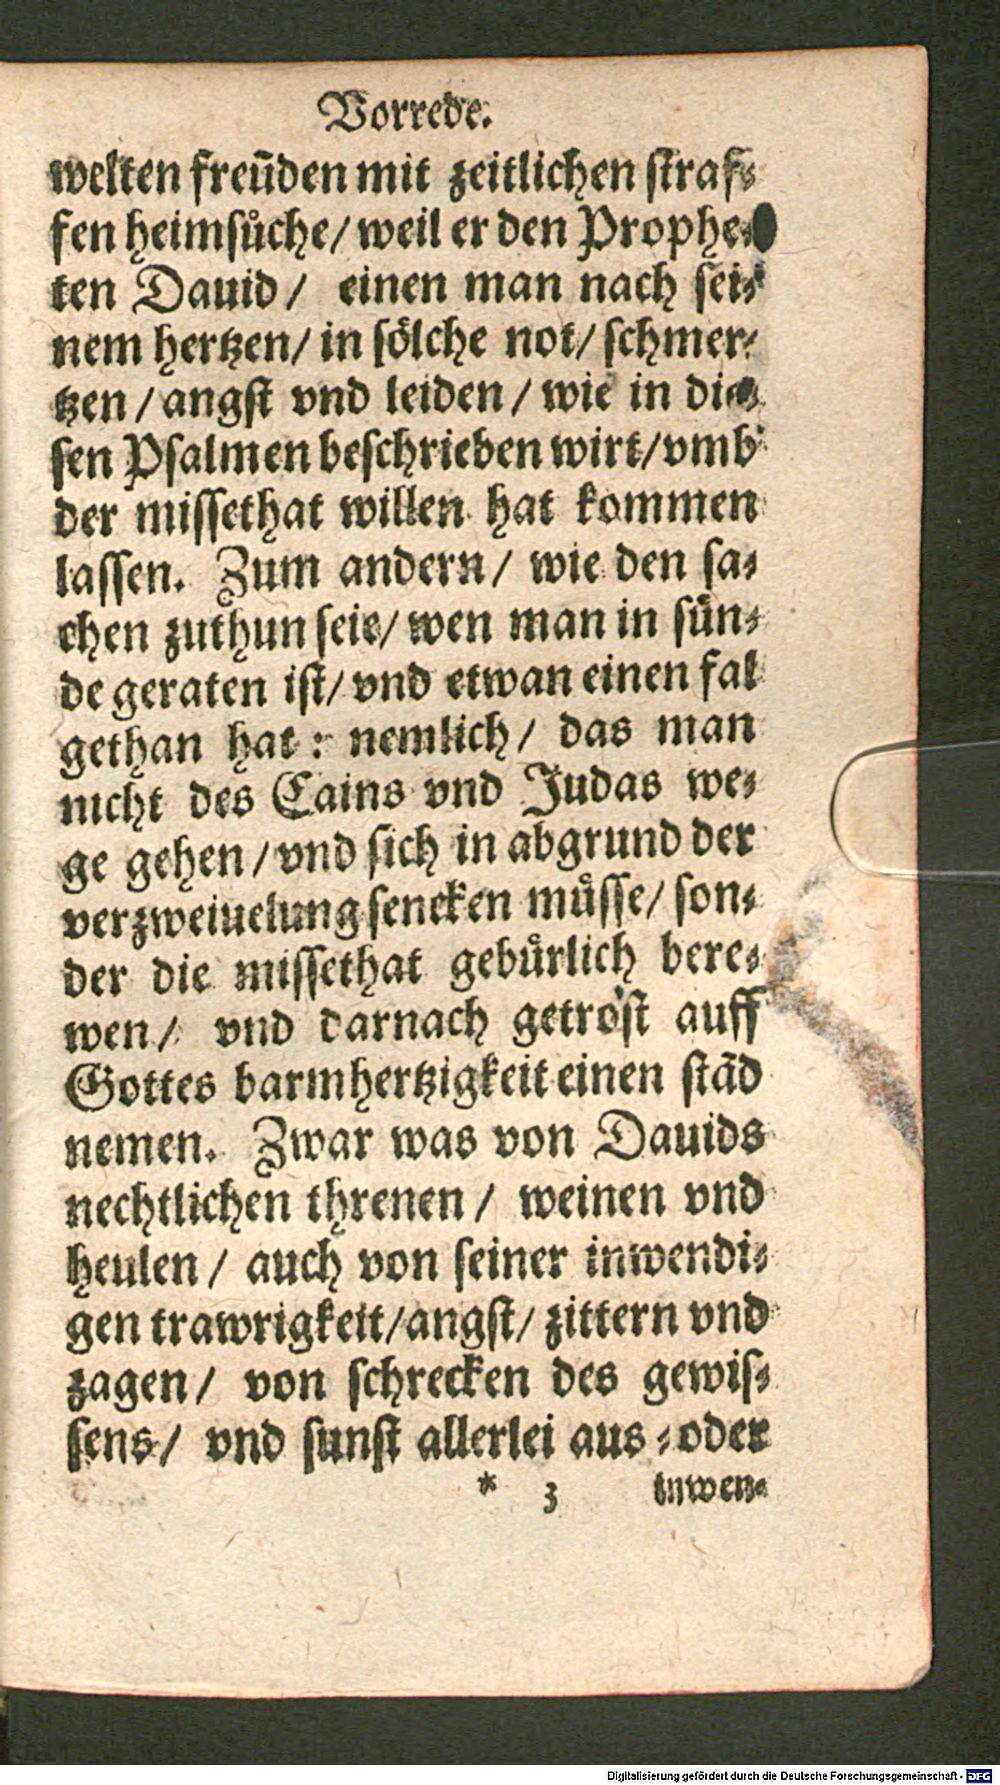 Vorrede.
welten freūden mit zeitlichen straf⸗
fen heimsuͤche/ weil er den Prophe⸗
ten Dauid/ einen man nach sei⸗
nem hertzen/ in soͤlche not/ schmer⸗
tzen/ angst vnd leiden/ wie in die⸗
sen Psalmen beschrieben wirt/ vmb
der missethat willen hat kommen
lassen. Zum andern/ wie den sa⸗
chen zuthun seie/ wen man in suͤn⸗
de geraten ist/ vnd etwan einen fal
gethan hat: nemlich/ das man
nicht des Cains vnd Judas we⸗
ge gehen/ vnd sich in abgrund der
verzweiuelung sencken muͤsse/ son⸗
der die missethat gebuͤrlich bere⸗
wen/ vnd darnach getroͤst auff
Gottes barmhertzigkeit einen stād
nemen. Zwar was von Dauids
nechtlichen threnen/ weinen vnd
heulen/ auch von seiner inwendi⸗
gen trawrigkeit/ angst/ zittern vnd
zagen/ von schrecken des gewis⸗
sens/ vnd sunst allerlei aus⸗oder
* 3 inwen⸗
Digitalisierung gefördert durch die Deutsche Forschungsgemeinschaft - DFG